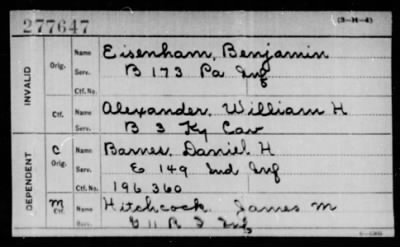 277647 (3-H-4)
INVALID
Orig. Name Eisenham, Benjamin
Serv. B 173 Pa Inf
Ctf. No.
Ctf. Name Alexander, William H
Serv. B 3 Ky Cav
DEPENDENT
C Name Barnes, Daniel H
Orig. Serv. E 149 Ind Inf
Ctf. No. 196360
M Name Hitchcock James M
Ctf. Serv. G 11 R I Inf